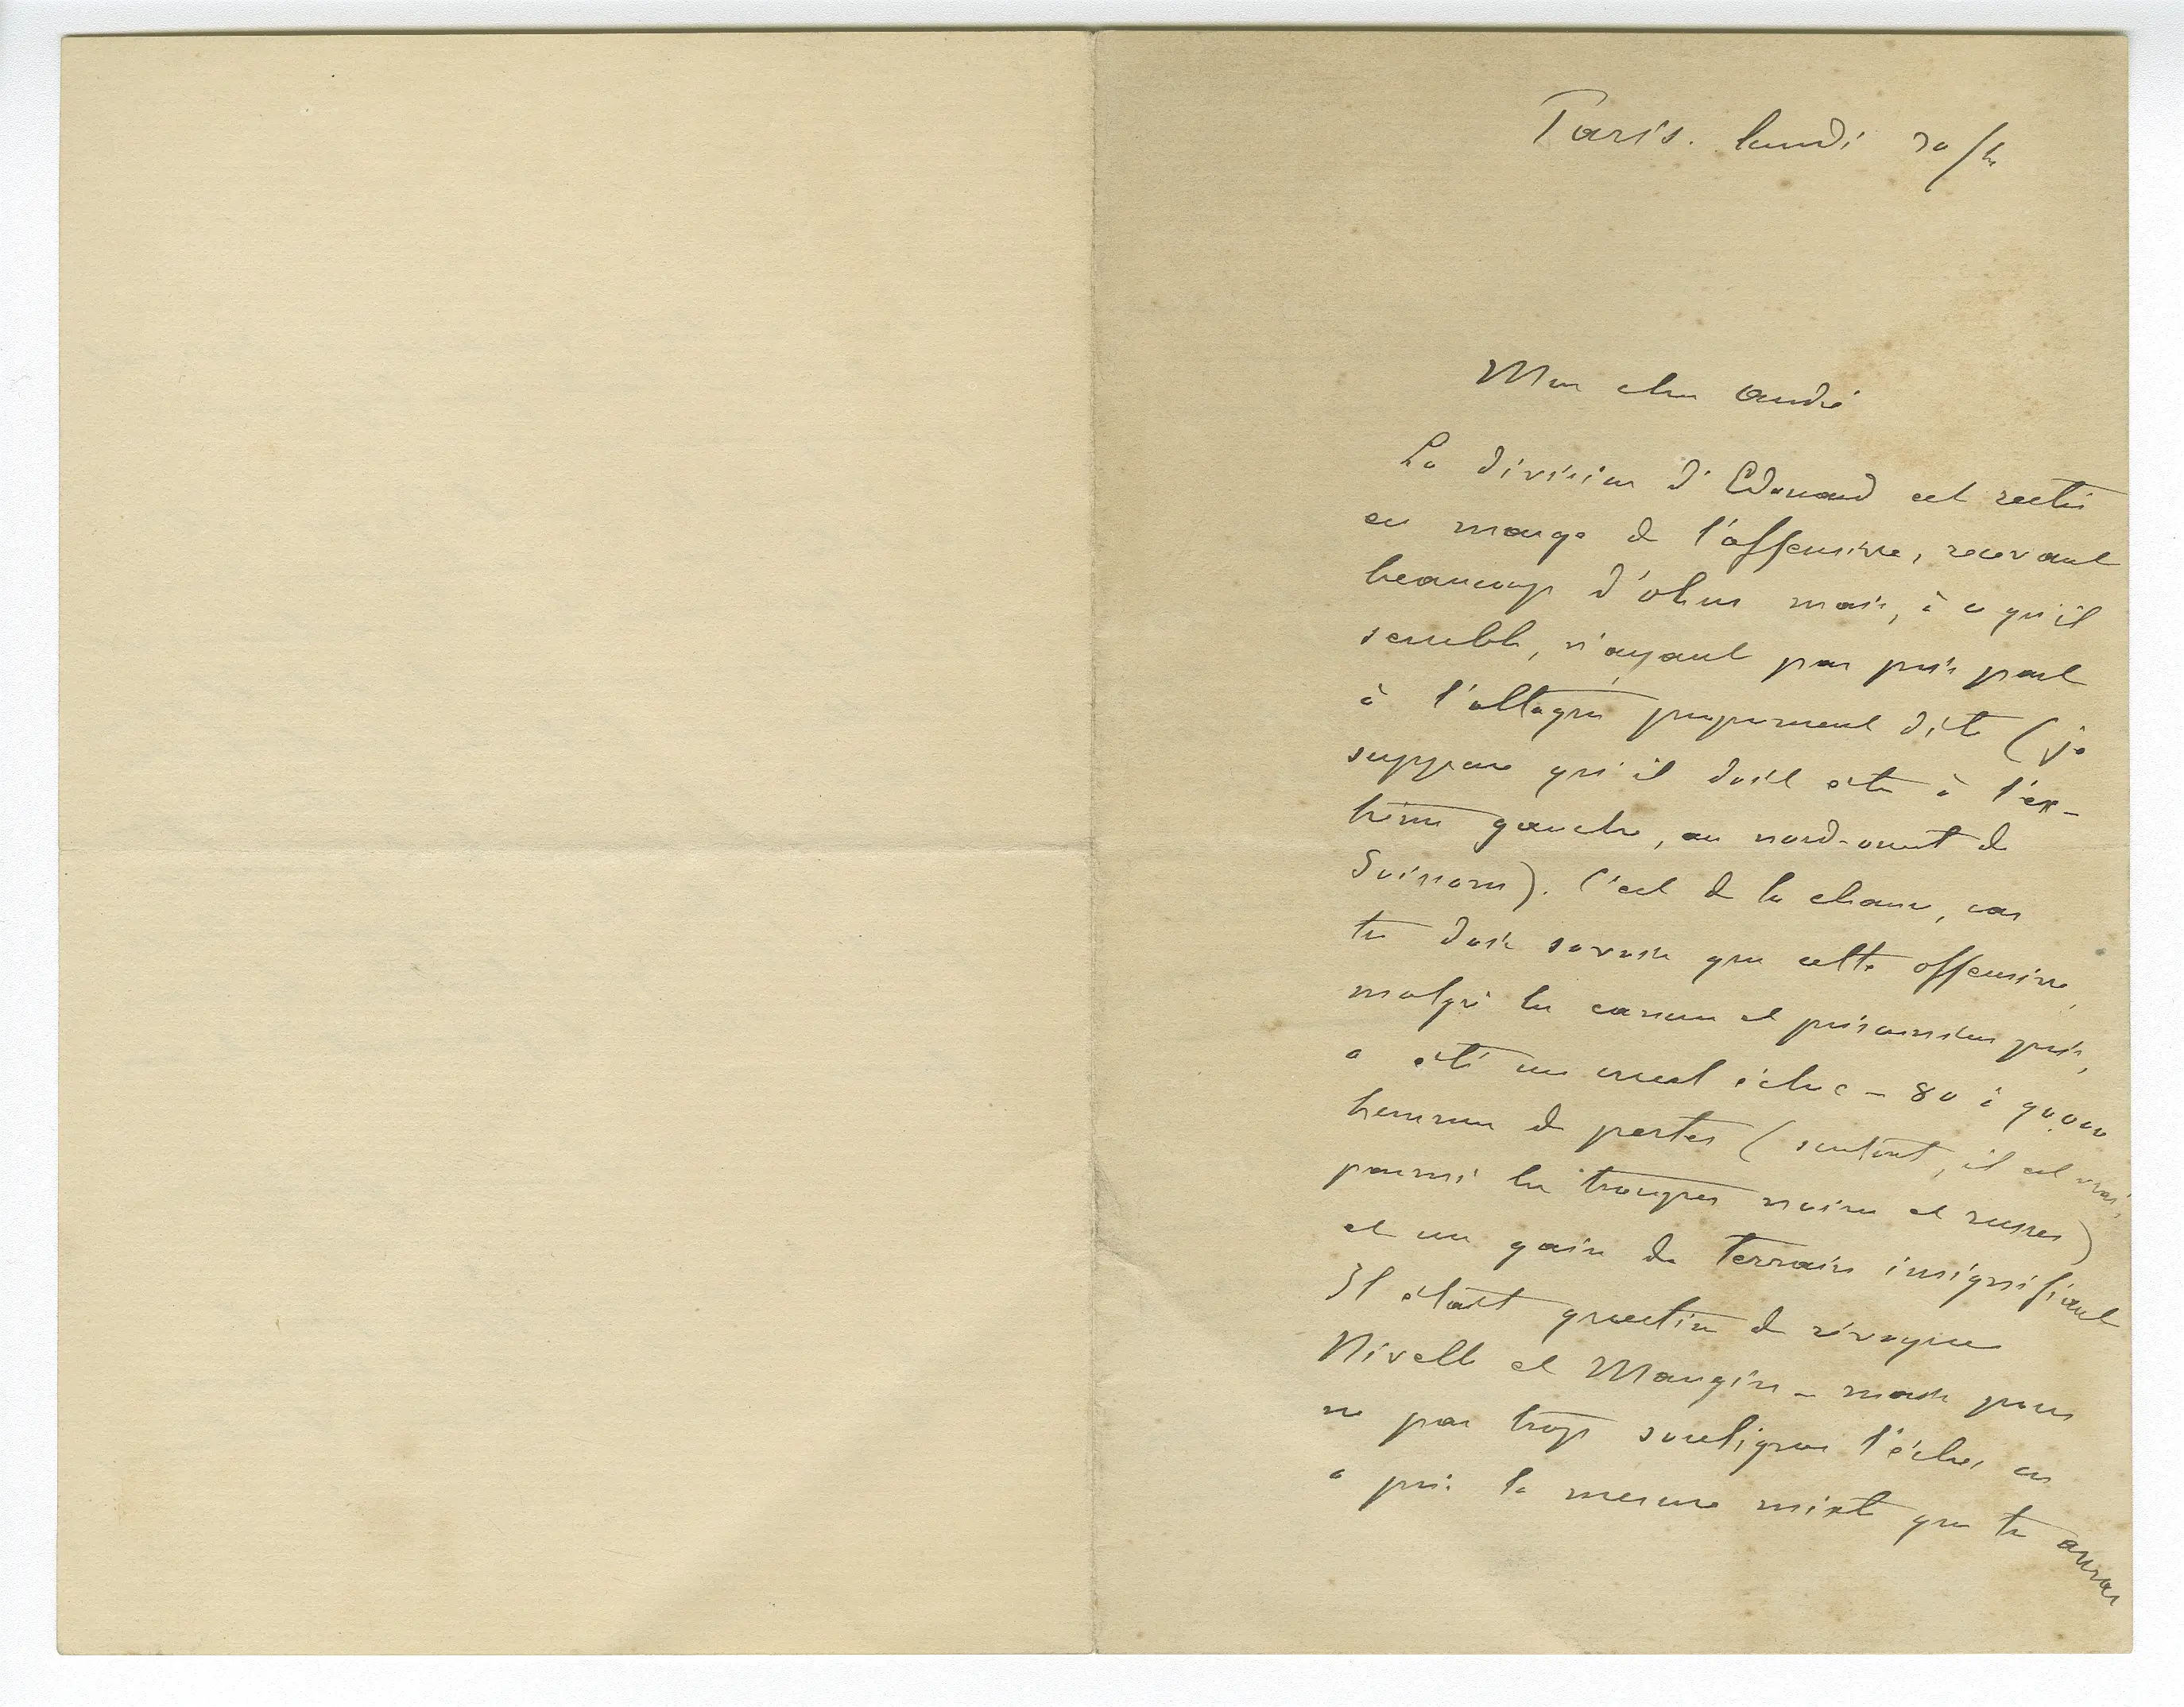 Paris. lundi 30/4
Mon cher André
La division d'Edouard est restée
en marge de l'offensive, recevant
beaucoup d'obus mais, à ce qu'il
semble, n'ayant pas pris part
à l'attaque proprement dite (je
suppose qu'il doit être à l'ex-
trême gauche, au nord-ouest de
Soissons). C'est de la chance, car
tu dois savoir que cette offensive,
malgré les canons et prisonniers pris,
a été un cruel échec – 80 à 90.000
hommes de pertes (surtout, il est vrai,
parmi les troupes noires et russes)
et un gain de terrain insignifiant
Il était question de révoquer
Nivelle et Mangin – mais pour
ne pas trop souligner l'échec on
a pris la mesure mixte que tu auras